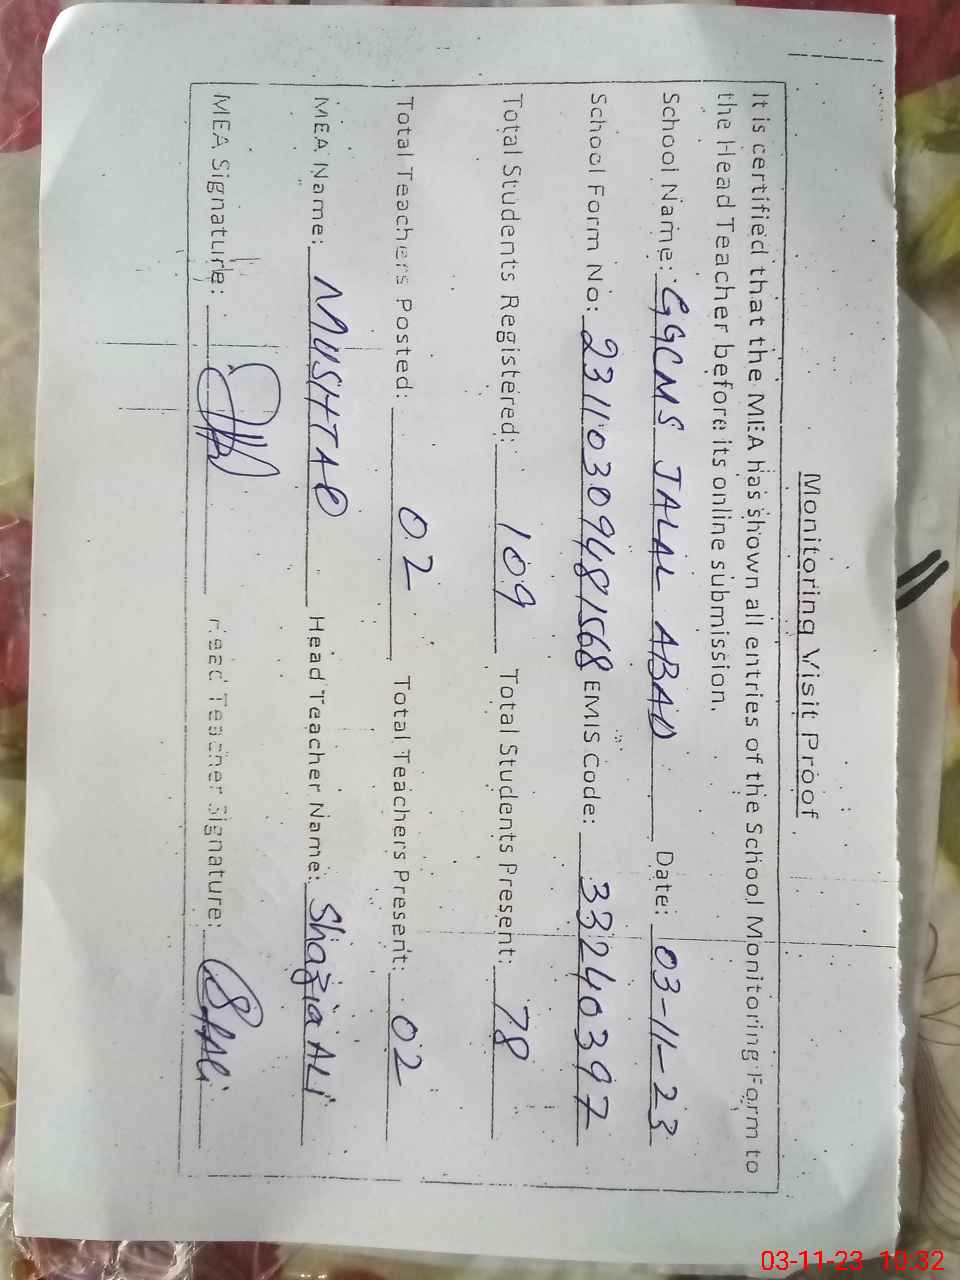 Monitoring Visit Proof
It is certified that the MEA has shown all entries of the School Monitoring Form to
the Head Teacher before its online submission.
School Name: GGCMS JALAL ABAD Date: 03-11-23
School Form No: 23110309481568 EMIS Code: 33240397
Total Students Registered: 109 Total Students Present: 78
Total Teachers Posted: 02 Total Teachers Present: 02
MEA Name: MUSHTAQ Head Teacher Name: Shazia ALi
MEA Signature: Head Teacher Signature: SHAli
03-11-23 10:32